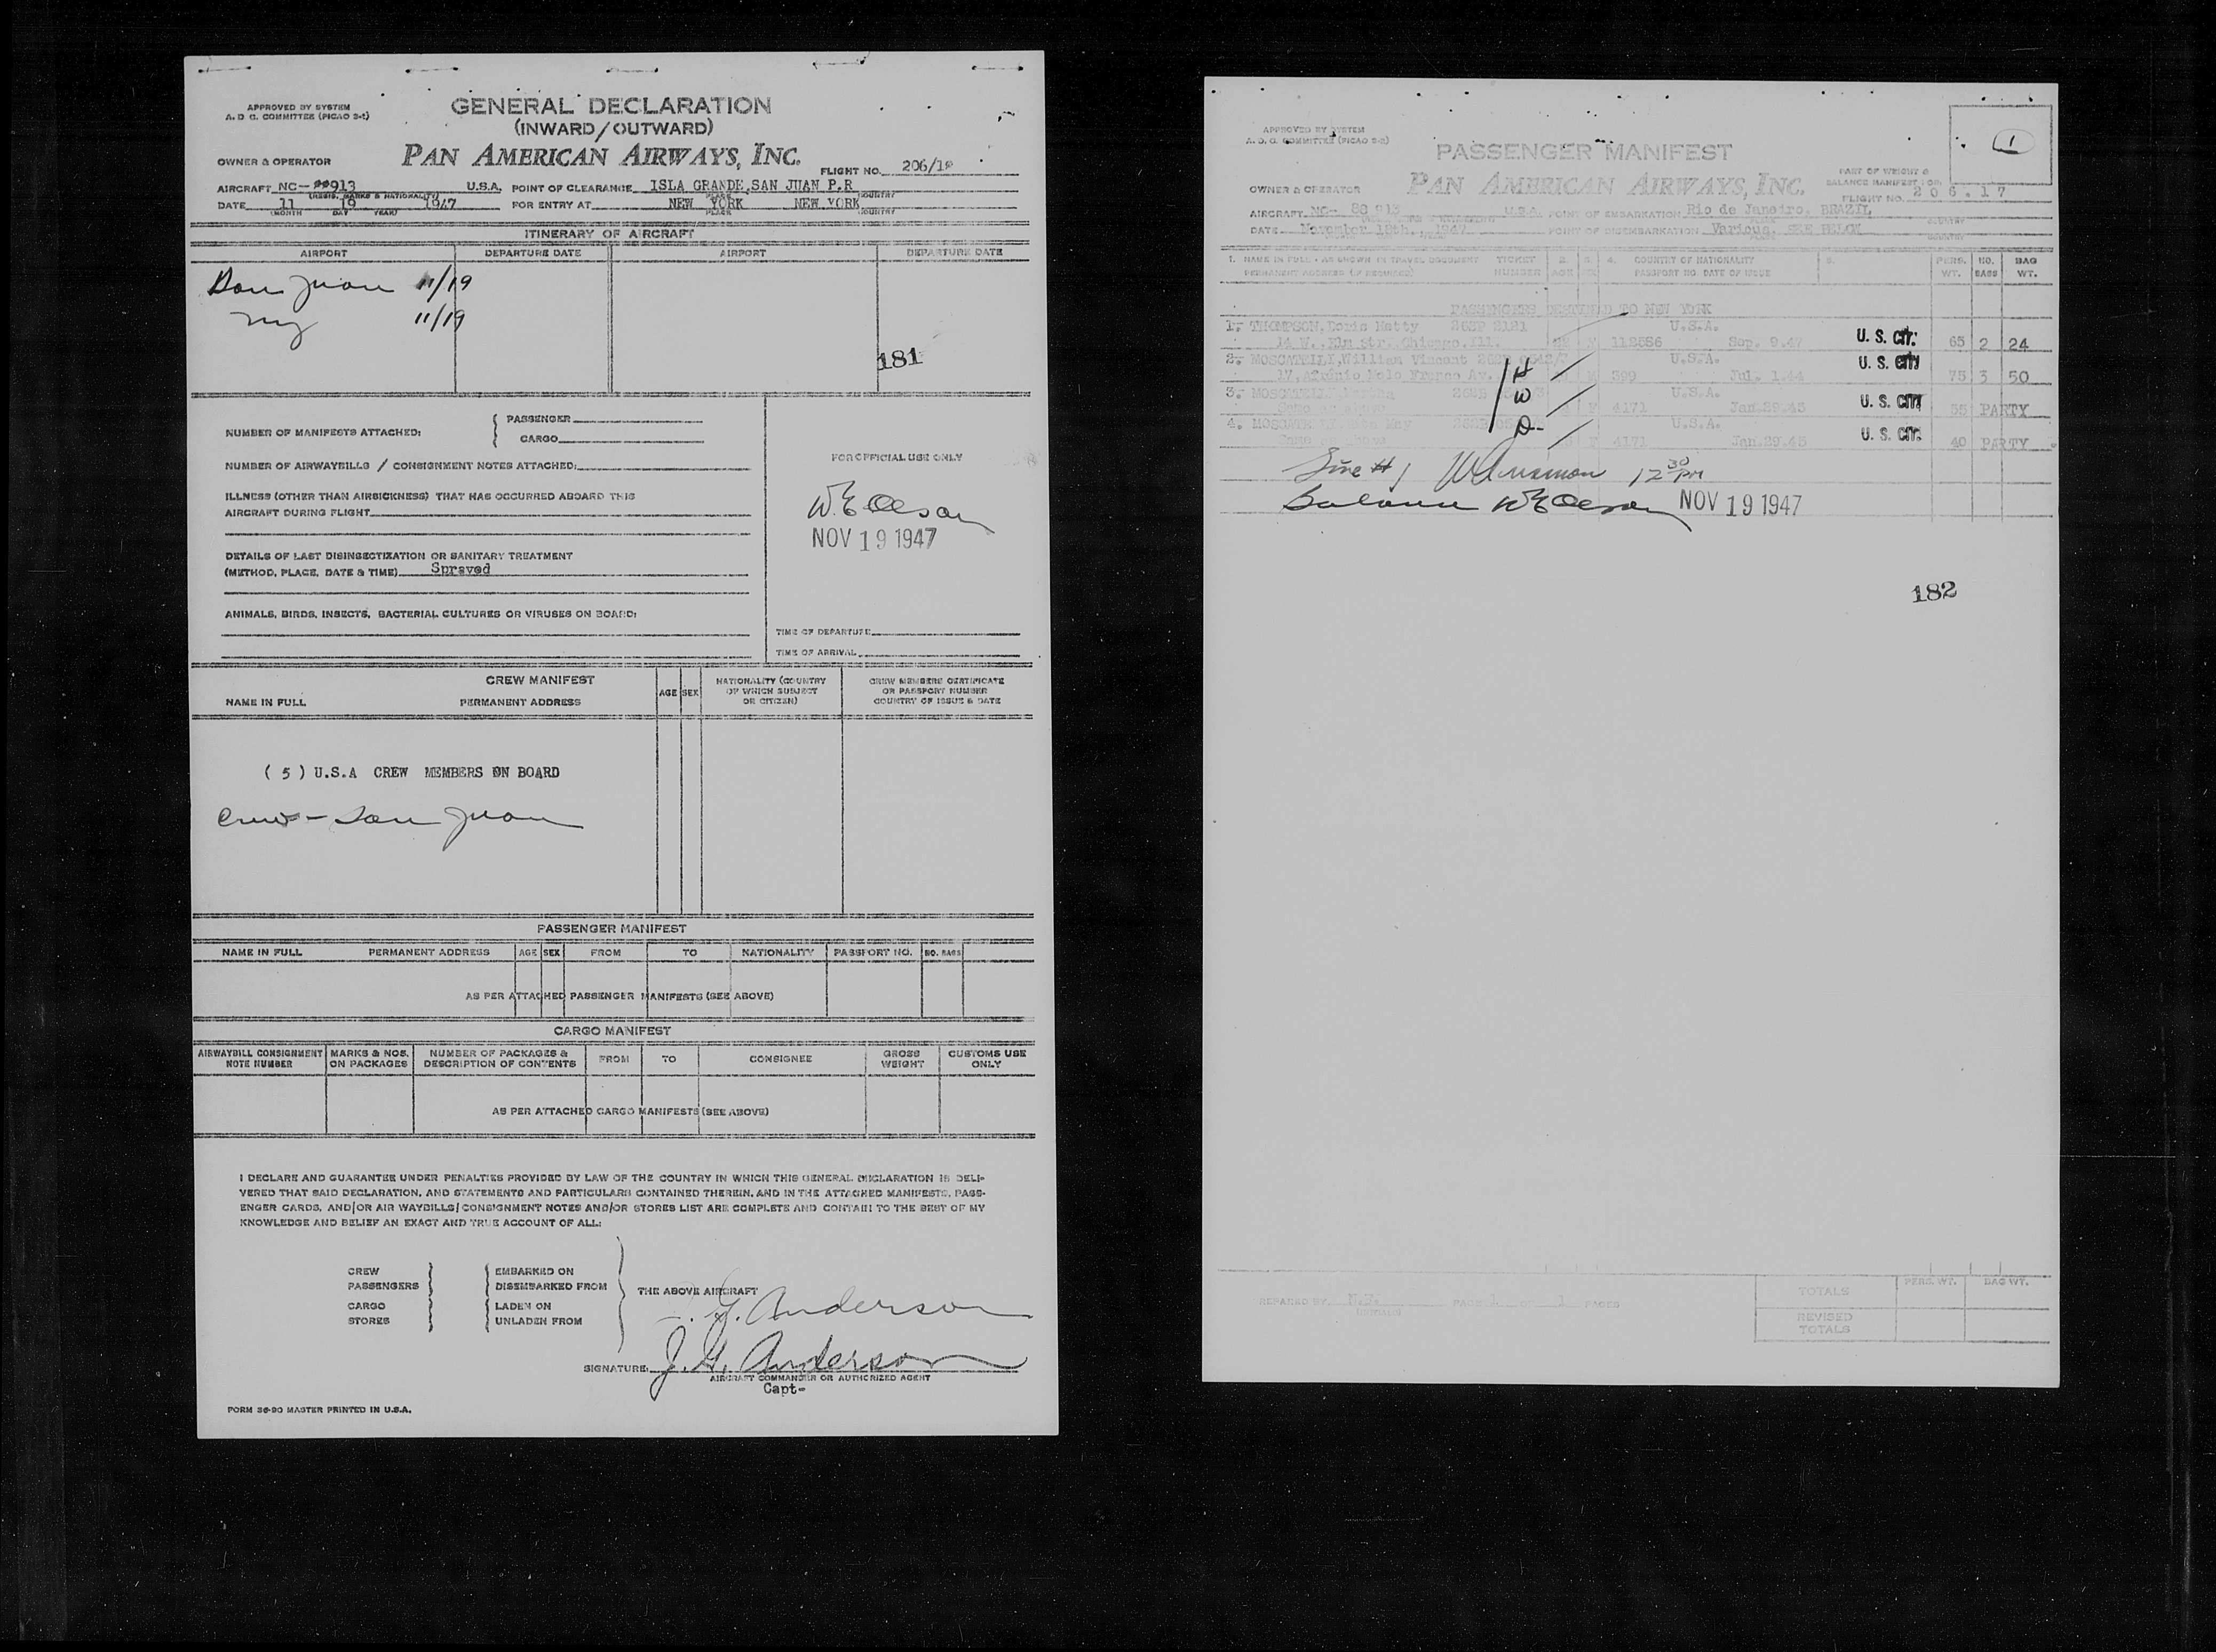 APPROVED BY SYSTEM
A. D. C. COMMITTEE (PICAO 2-1)
GENERAL DECLARATION
(INWARD/OUTWARD)
OWNER & OPERATOR
PAN AMERICAN AIRWAYS, INC.
FLIGHT NO. 206/18
AIRCRAFT NC- 913 U.S.A. POINT OF CLEARANCE ISLA GRANDE, SAN JUAN P.R
(REGIS. MARKS & NATIONALITY) PLACE COUNTRY
DATE 11 19 1947 FOR ENTRY AT NEW YORK NEW YORK
(MONTH DAY YEAR) PLACE COUNTRY
ITINERARY OF AIRCRAFT
AIRPORT DEPARTURE DATE AIRPORT DEPARTURE DATE
San Juan 11/19
ny 11/19
181
NUMBER OF MANIFESTS ATTACHED:
PASSENGER
CARGO
NUMBER OF AIRWAYBILLS / CONSIGNMENT NOTES ATTACHED:
ILLNESS (OTHER THAN AIRSICKNESS) THAT HAS OCCURRED ABOARD THIS
AIRCRAFT DURING FLIGHT
DETAILS OF LAST DISINSECTIZATION OR SANITARY TREATMENT
(METHOD, PLACE, DATE & TIME) Sprayed
ANIMALS, BIRDS, INSECTS, BACTERIAL CULTURES OR VIRUSES ON BOARD:
FOR OFFICIAL USE ONLY
W E Oleson
NOV 19 1947
TIME OF DEPARTURE
TIME OF ARRIVAL
CREW MANIFEST
NAME IN FULL PERMANENT ADDRESS
AGE SEX
NATIONALITY (COUNTRY
OF WHICH SUBJECT
OR CITIZEN)
CREW MEMBERS CERTIFICATE
OR PASSPORT NUMBER
COUNTRY OF ISSUE & DATE
( 5 ) U.S.A CREW MEMBERS ON BOARD
Crew - San Juan
PASSENGER MANIFEST
NAME IN FULL PERMANENT ADDRESS AGE SEX FROM TO NATIONALITY PASSPORT NO. NO. BAGS
AS PER ATTACHED PASSENGER MANIFESTS (SEE ABOVE)
CARGO MANIFEST
AIRWAYBILL CONSIGNMENT
NOTE NUMBER
MARKS & NOS.
ON PACKAGES
NUMBER OF PACKAGES &
DESCRIPTION OF CONTENTS
FROM TO CONSIGNEE
GROSS
WEIGHT
CUSTOMS USE
ONLY
AS PER ATTACHED CARGO MANIFESTS (SEE ABOVE)
I DECLARE AND GUARANTEE UNDER PENALTIES PROVIDED BY LAW OF THE COUNTRY IN WHICH THIS GENERAL DECLARATION IS DELI-
VERED THAT SAID DECLARATION, AND STATEMENTS AND PARTICULARS CONTAINED THEREIN, AND IN THE ATTACHED MANIFESTS, PASS-
ENGER CARDS, AND/OR AIR WAYBILLS/CONSIGNMENT NOTES AND/OR STORES LIST ARE COMPLETE AND CONTAIN TO THE BEST OF MY
KNOWLEDGE AND BELIEF AN EXACT AND TRUE ACCOUNT OF ALL:
CREW EMBARKED ON
PASSENGERS DISEMBARKED FROM
THE ABOVE AIRCRAFT
CARGO LADEN ON
STORES UNLADEN FROM
J. G. Anderson
SIGNATURE: J. G. Anderson
AIRCRAFT COMMANDER OR AUTHORIZED AGENT
Capt-
FORM 36-90 MASTER PRINTED IN U.S.A.
APPROVED BY SYSTEM
A. D. C. COMMITTEE (PICAO 2-2)
PASSENGER MANIFEST
1
OWNER & OPERATOR
PAN AMERICAN AIRWAYS, INC.
PART OF WEIGHT &
BALANCE MANIFEST FOR
FLIGHT NO. 206.17
AIRCRAFT NC- 88 913 U.S.A. POINT OF EMBARKATION Rio de Janeiro, BRAZIL
DATE November 18th., 1947 POINT OF DISEMBARKATION Various, SEE BELOW
1. NAME IN FULL - AS SHOWN IN TRAVEL DOCUMENT TICKET 2. 3. 4. COUNTRY OF NATIONALITY 5. PERS. NO. BAG
PERMANENT ADDRESS (IF REQUIRED) NUMBER AGE SEX PASSPORT NO. DATE OF ISSUE WT. BAGS WT.
PASSENGERS DESTINED TO NEW YORK
1. THOMPSON, Doris Hetty 262P 2121 U.S.A.
14 W., Elm str. Chicago, Ill. 112586 Sep. 9.47 U. S. CIT. 65 2 24
2. MOSCATELLI, William Vincent U.S.A.
17, Afranio Melo Franco Av. H 399 Jul. 1.44 U. S. CIT. 75 3 50
3. MOSCATELLI, U.S.A.
W 4171 Jan.29.43 U. S. CIT. 55 PARTY
4. U.S.A.
D- Same as above 4171 Jan.29.43 U. S. CIT. 40 PARTY
Line # 1 12 30 PM
Balance W E Oleson NOV 19 1947
182
PREPARED BY N.F. PAGE 1 OF 1 PAGES
TOTALS PERS. WT. BAG WT.
REVISED
TOTALS